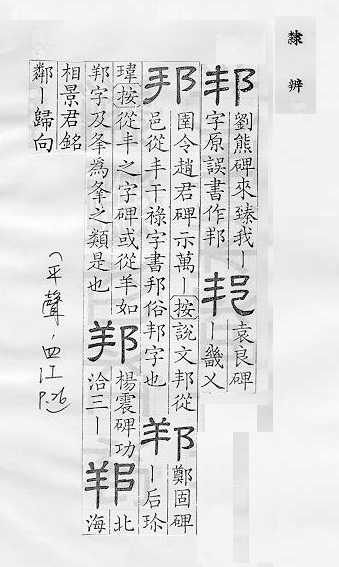 隸辨
邦
劉熊碑來臻我ー
字原誤書作邦
邦
袁良碑
ー畿乂
邦
圉令趙君碑示萬ー按說文邦從
邑從丰干祿字書邦俗邦字也
邦
鄭固碑
ー后珎
瑋按從丰之字碑或從羊如
邦字及夆為夆之類是也
邦
楊震碑功
洽三ー
邦
北
海
相景君銘
鄰ー歸向
(平聲·四江 P.26)